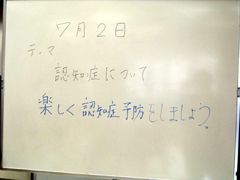 7月2日
テーマ
認知症について
楽しく認知症予防をしましょう。